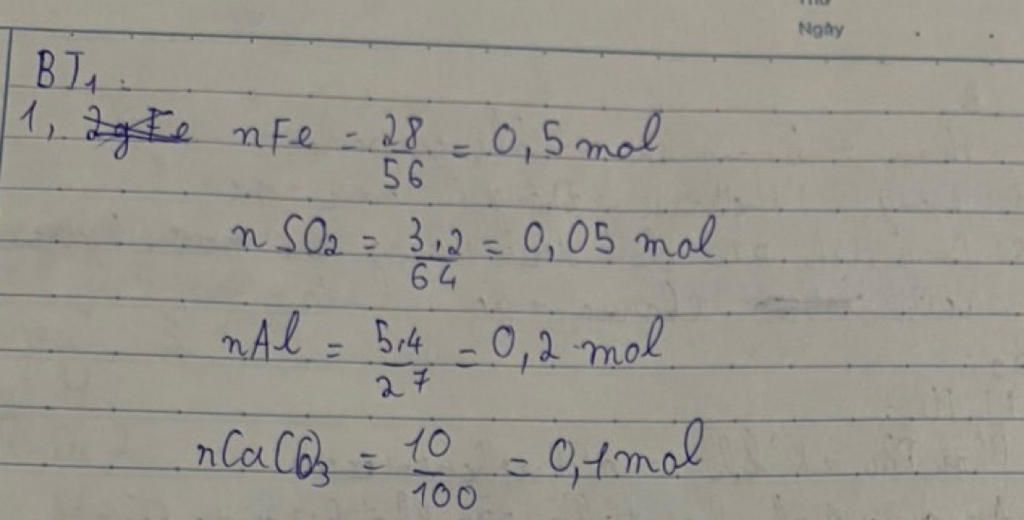 Thứ
Ngày
BT1:
1, 2gFe nFe = 28/56 = 0,5 mol
nSO2 = 3,2/64 = 0,05 mol
nAl = 5,4/27 = 0,2 mol
nCaCO3 = 10/100 = 0,1 mol